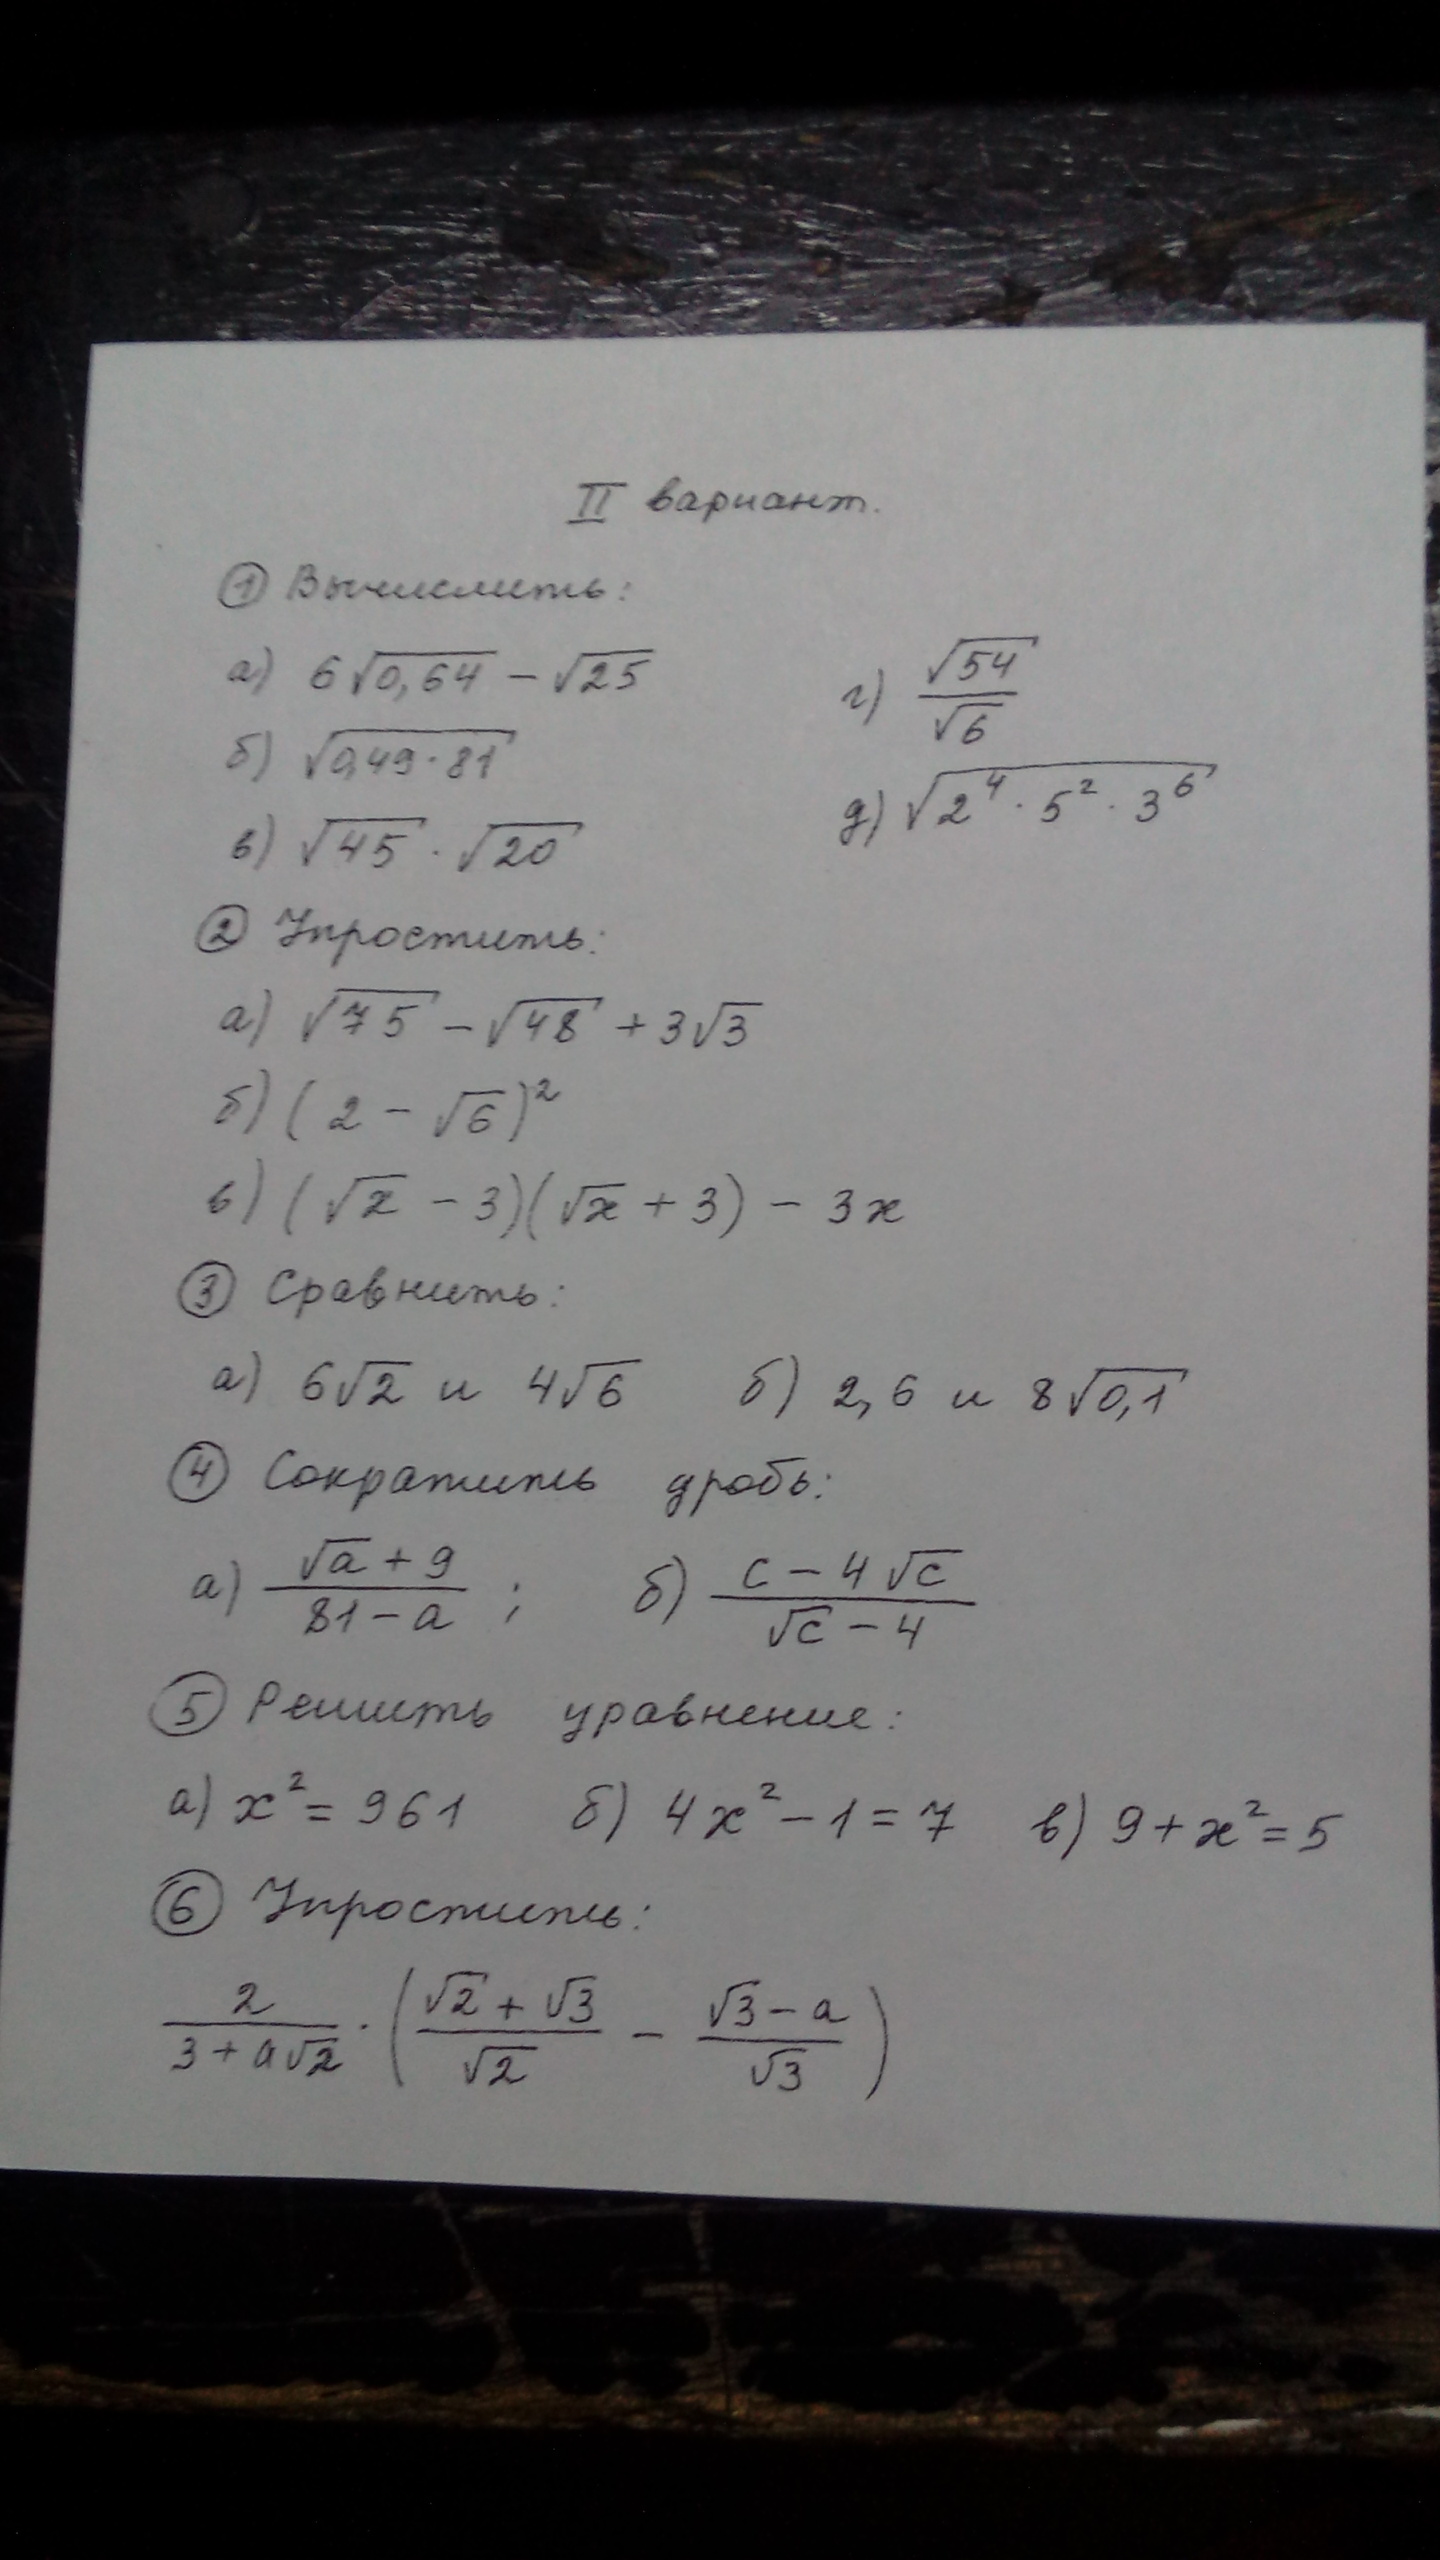 II вариант.
① Вычислить:
а) 6√0,64 − √25
б) √(0,49·81)
в) √45 · √20
г) √54/√6
д) √(2⁴ · 5² · 3⁶)
② Упростить:
а) √75 − √48 + 3√3
б) (2 − √6)²
в) (√x − 3)(√x + 3) − 3x
③ Сравнить:
а) 6√2 и 4√6 б) 2,6 и 8√0,1
④ Сократить дробь:
а) (√a + 9)/(81 − a) ; б) (c − 4√c)/(√c − 4)
⑤ Решить уравнение:
а) x² = 961 б) 4x² − 1 = 7 в) 9 + x² = 5
⑥ Упростить:
2/(3 + a√2) · ((√2 + √3)/√2 − (√3 − a)/√3)